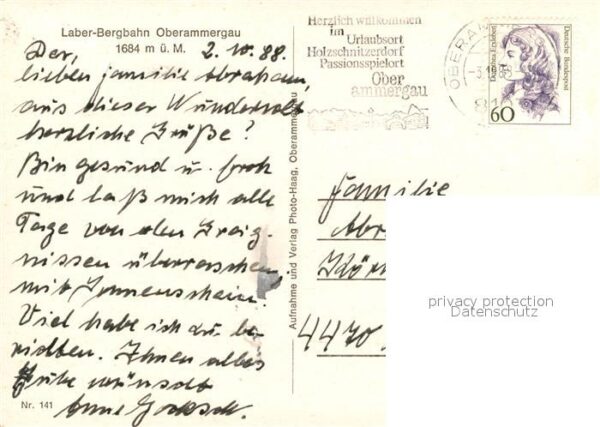 Laber-Bergbahn Oberammergau
1684 m ü. M.
2.10.88.
Der,
lieben Familie Abraham,
aus dieser Wunderwelt
herzliche Grüße!
Bin gesund u. froh
und laß mich alle
Tage von den Ereig-
nissen überraschen
mit Sonnenschein.
Viel habe ich zu be-
richten. Ihnen alles
Gute wünscht
Anne
Nr. 141
Aufnahme und Verlag Photo-Haag, Oberammergau
Herzlich willkommen
im
Urlaubsort
Holzschnitzerdorf
Passionsspielort
Ober
ammergau
OBERAM
Dorothea Erxleben
Deutsche Bundespost
60
Familie
Abr
4470
privacy protection
Datenschutz